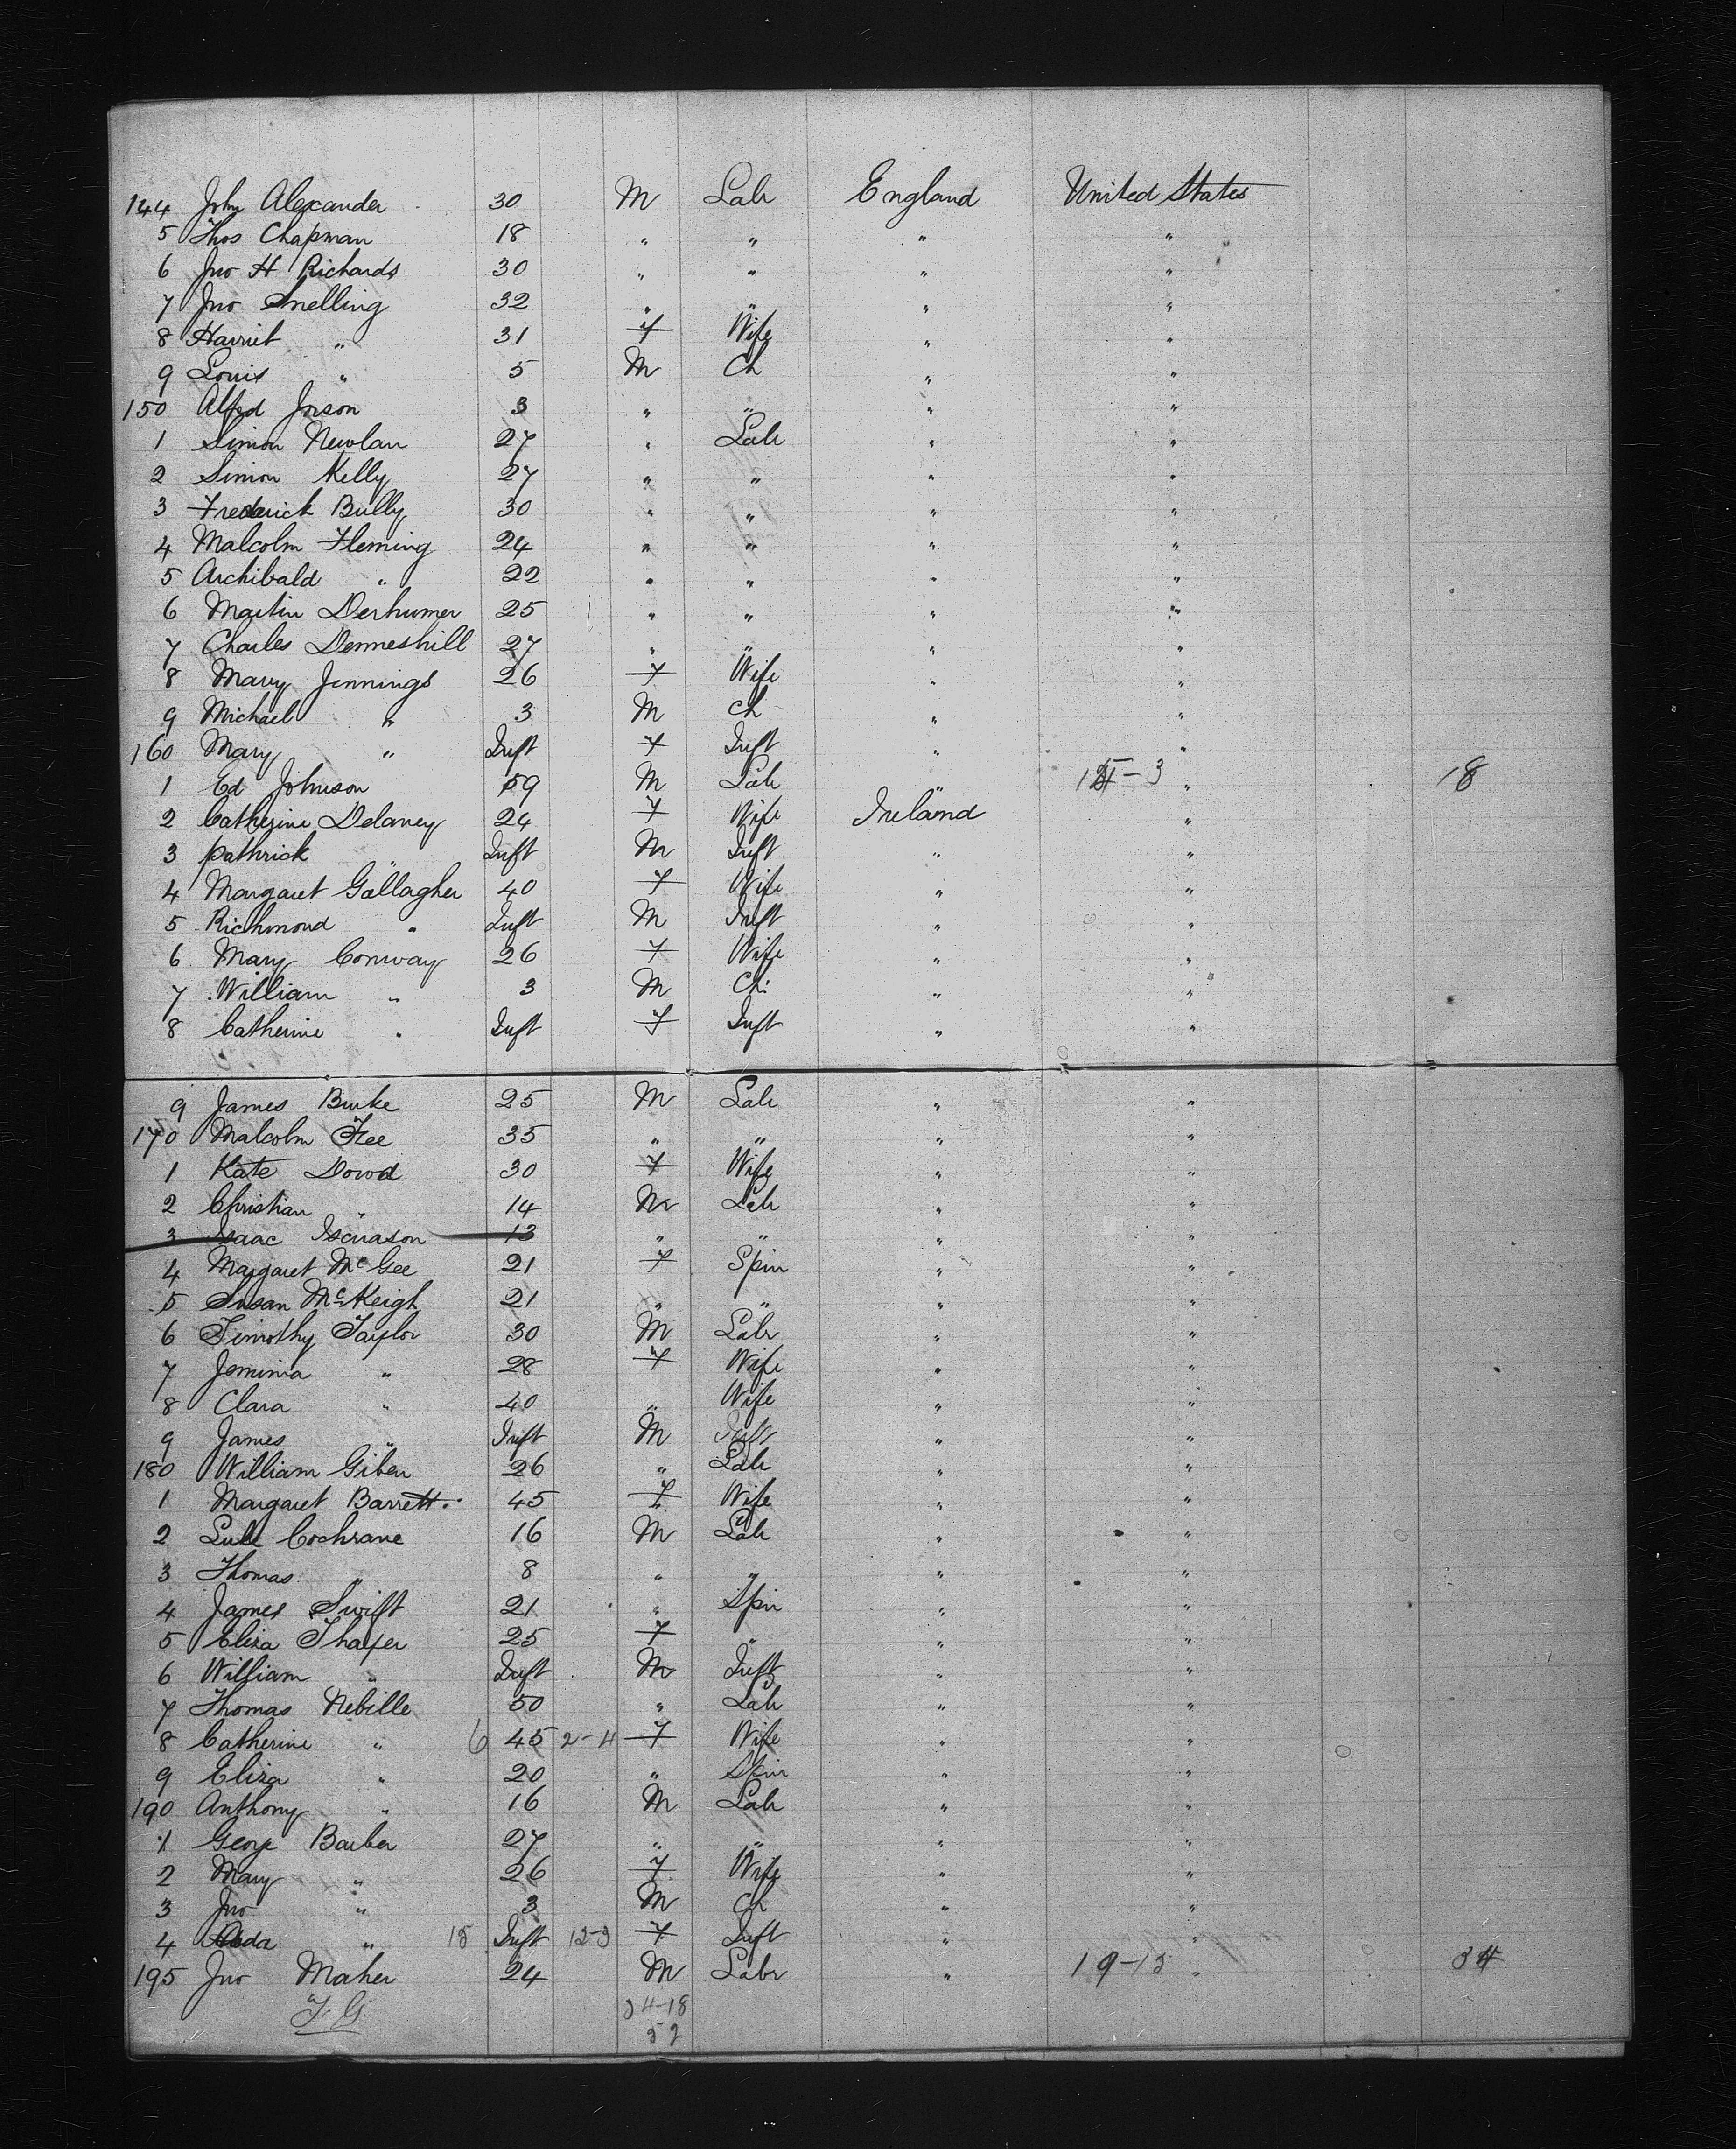 144 John Alexander 30 M Lab England United States
5 Thos Chapman 18 " " " "
6 Jno H Richards 30 " " " "
7 Jno Snelling 32 " " " "
8 Harriet " 31 F Wife " "
9 Louis " 5 M Ch " "
150 Alfed Jnson 3 " " " "
1 Simon Newlan 27 " Lab " "
2 Simon Kelly 27 " " " "
3 Frederick Bully 30 " " " "
4 Malcolm Fleming 24 " " " "
5 Archibald " 22 " " " "
6 Martin Derhumer 25 " " " "
7 Charles Denneshill 27 " " " "
8 Mary Jennings 26 F Wife " "
9 Michael " 3 M Ch " "
160 Mary " Inft F Inft " "
1 Ed Johnson 59 M Lab " 15-3 " 18
2 Catherine Delaney 24 F Wife Ireland "
3 Pathrick " Inft M Inft " "
4 Margaret Gallagher 40 F Wife " "
5 Richmond " Inft M Inft " "
6 Mary Conway 26 F Wife " "
7 William " 3 M Ch " "
8 Catherine " Inft F Inft " "
9 James Burke 25 M Lab " "
170 Malcolm Fee 35 " " " "
1 Kate Dowd 30 F Wife " "
2 Christian " 14 M Lab " "
3 Isaac 13 " " " "
4 Margaret McGee 21 F Spin " "
5 Susan McKeigh 21 " " " "
6 Timothy Taylor 30 M Labr " "
7 Jemima " 28 F Wife " "
8 Clara " 40 " Wife " "
9 James " Inft M Inft " "
180 William Giben 26 " Lab " "
1 Margaret Barrett 45 F Wife " "
2 Cochrane 16 M Lab " "
3 Thomas " 8 " " " "
4 James Swift 21 " Spin " "
5 Eliza Thayer 25 F " " "
6 William " Inft M Inft " "
7 Thomas Nebille 50 " Lab " "
8 Catherine " 6 45 2-4 F Wife " "
9 Eliza " 20 " Spin " "
190 Anthony " 16 M Lab " "
1 George Barber 27 " " " "
2 Mary " 26 F Wife " "
3 Jno " 3 M Ch " "
4 Ada " 18 Inft 12-3 F Inft " "
195 Jno Maher 24 M Labr " 19-15 " 34
F. G.
34-18
52